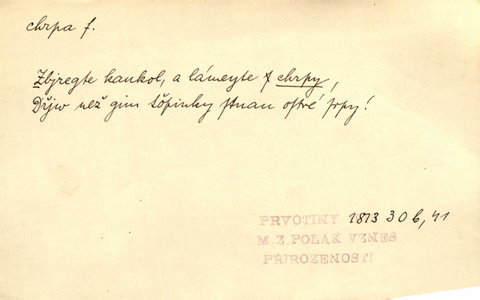 chrpa f.
Zbjregte kaukol, a lámeyte chrpy,
Dřjw než gim ssopinky stnau ostré srpy!
PRVOTINY 1813 306, 41
M. Z. POLAK VZNEŠ
PŘIROZENOSTI